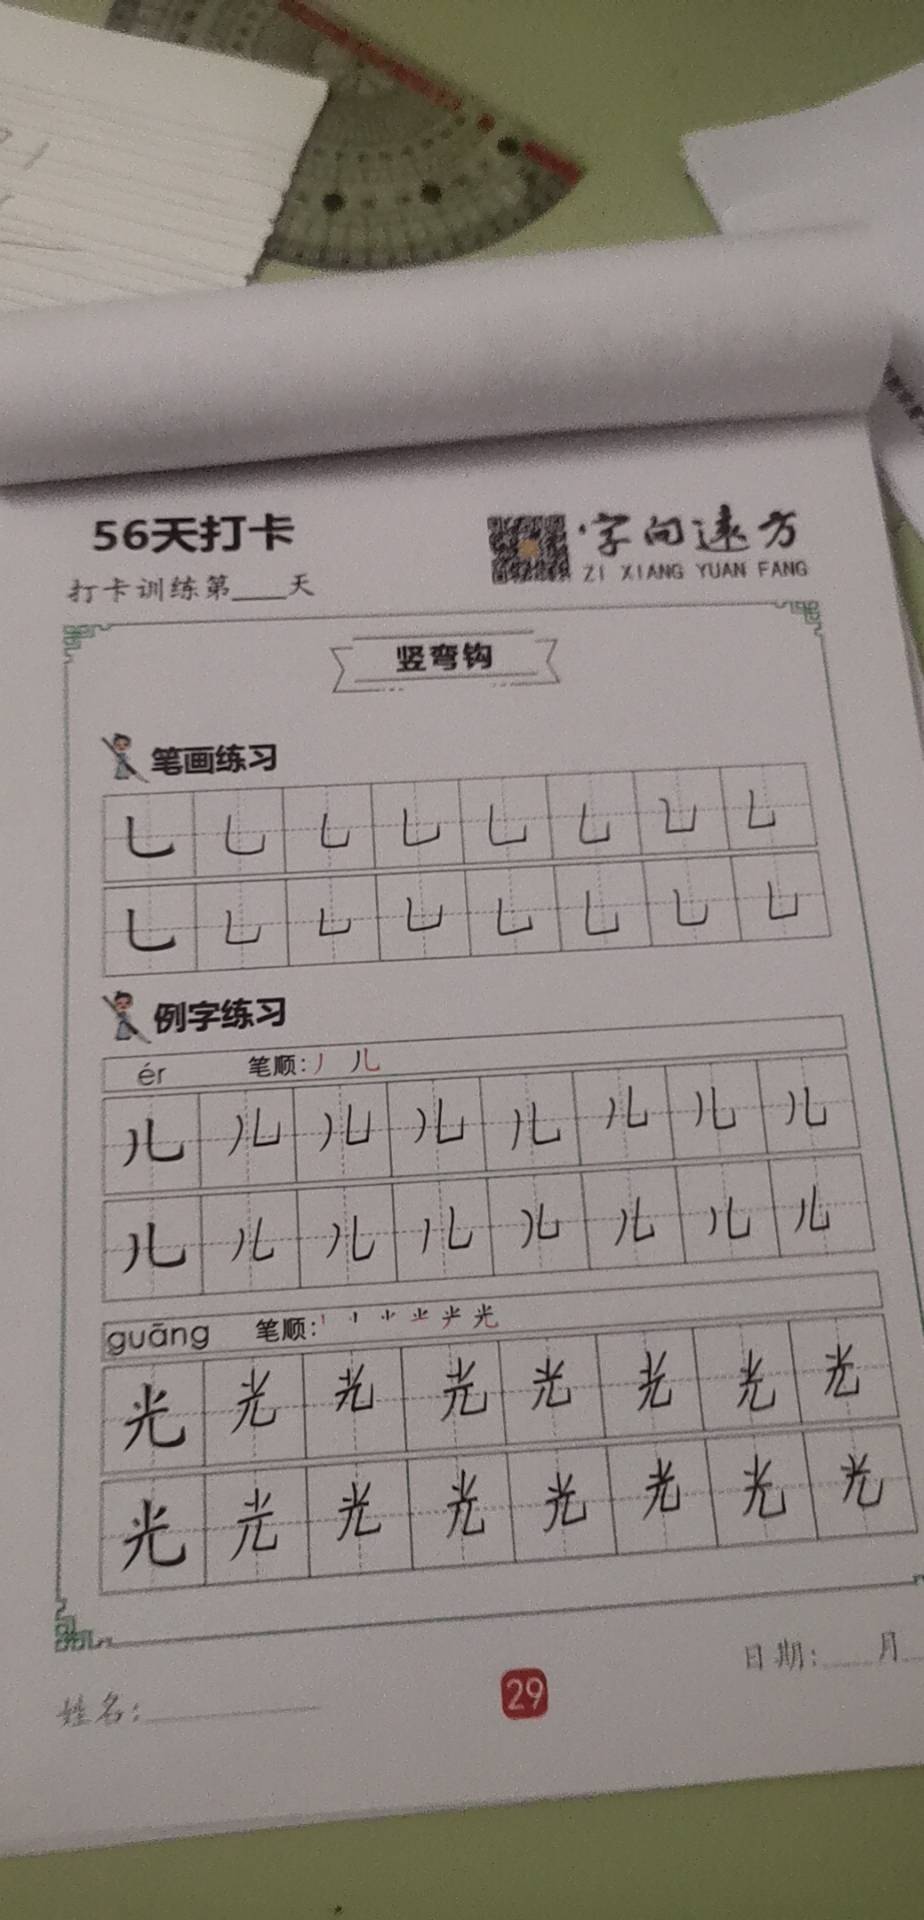 56天打卡
字向远方
ZI XIANG YUAN FANG
打卡训练第____天
竖弯钩
笔画练习
乚 乚 乚 乚 乚 乚 乚 乚
乚 乚 乚 乚 乚 乚 乚 乚
例字练习
ér 笔顺：丿 儿
儿 儿 儿 儿 儿 儿 儿 儿
儿 儿 儿 儿 儿 儿 儿 儿
guāng 笔顺： 光
光 光 光 光 光 光 光 光
光 光 光 光 光 光 光 光
日期：____月__
姓名：__________
29